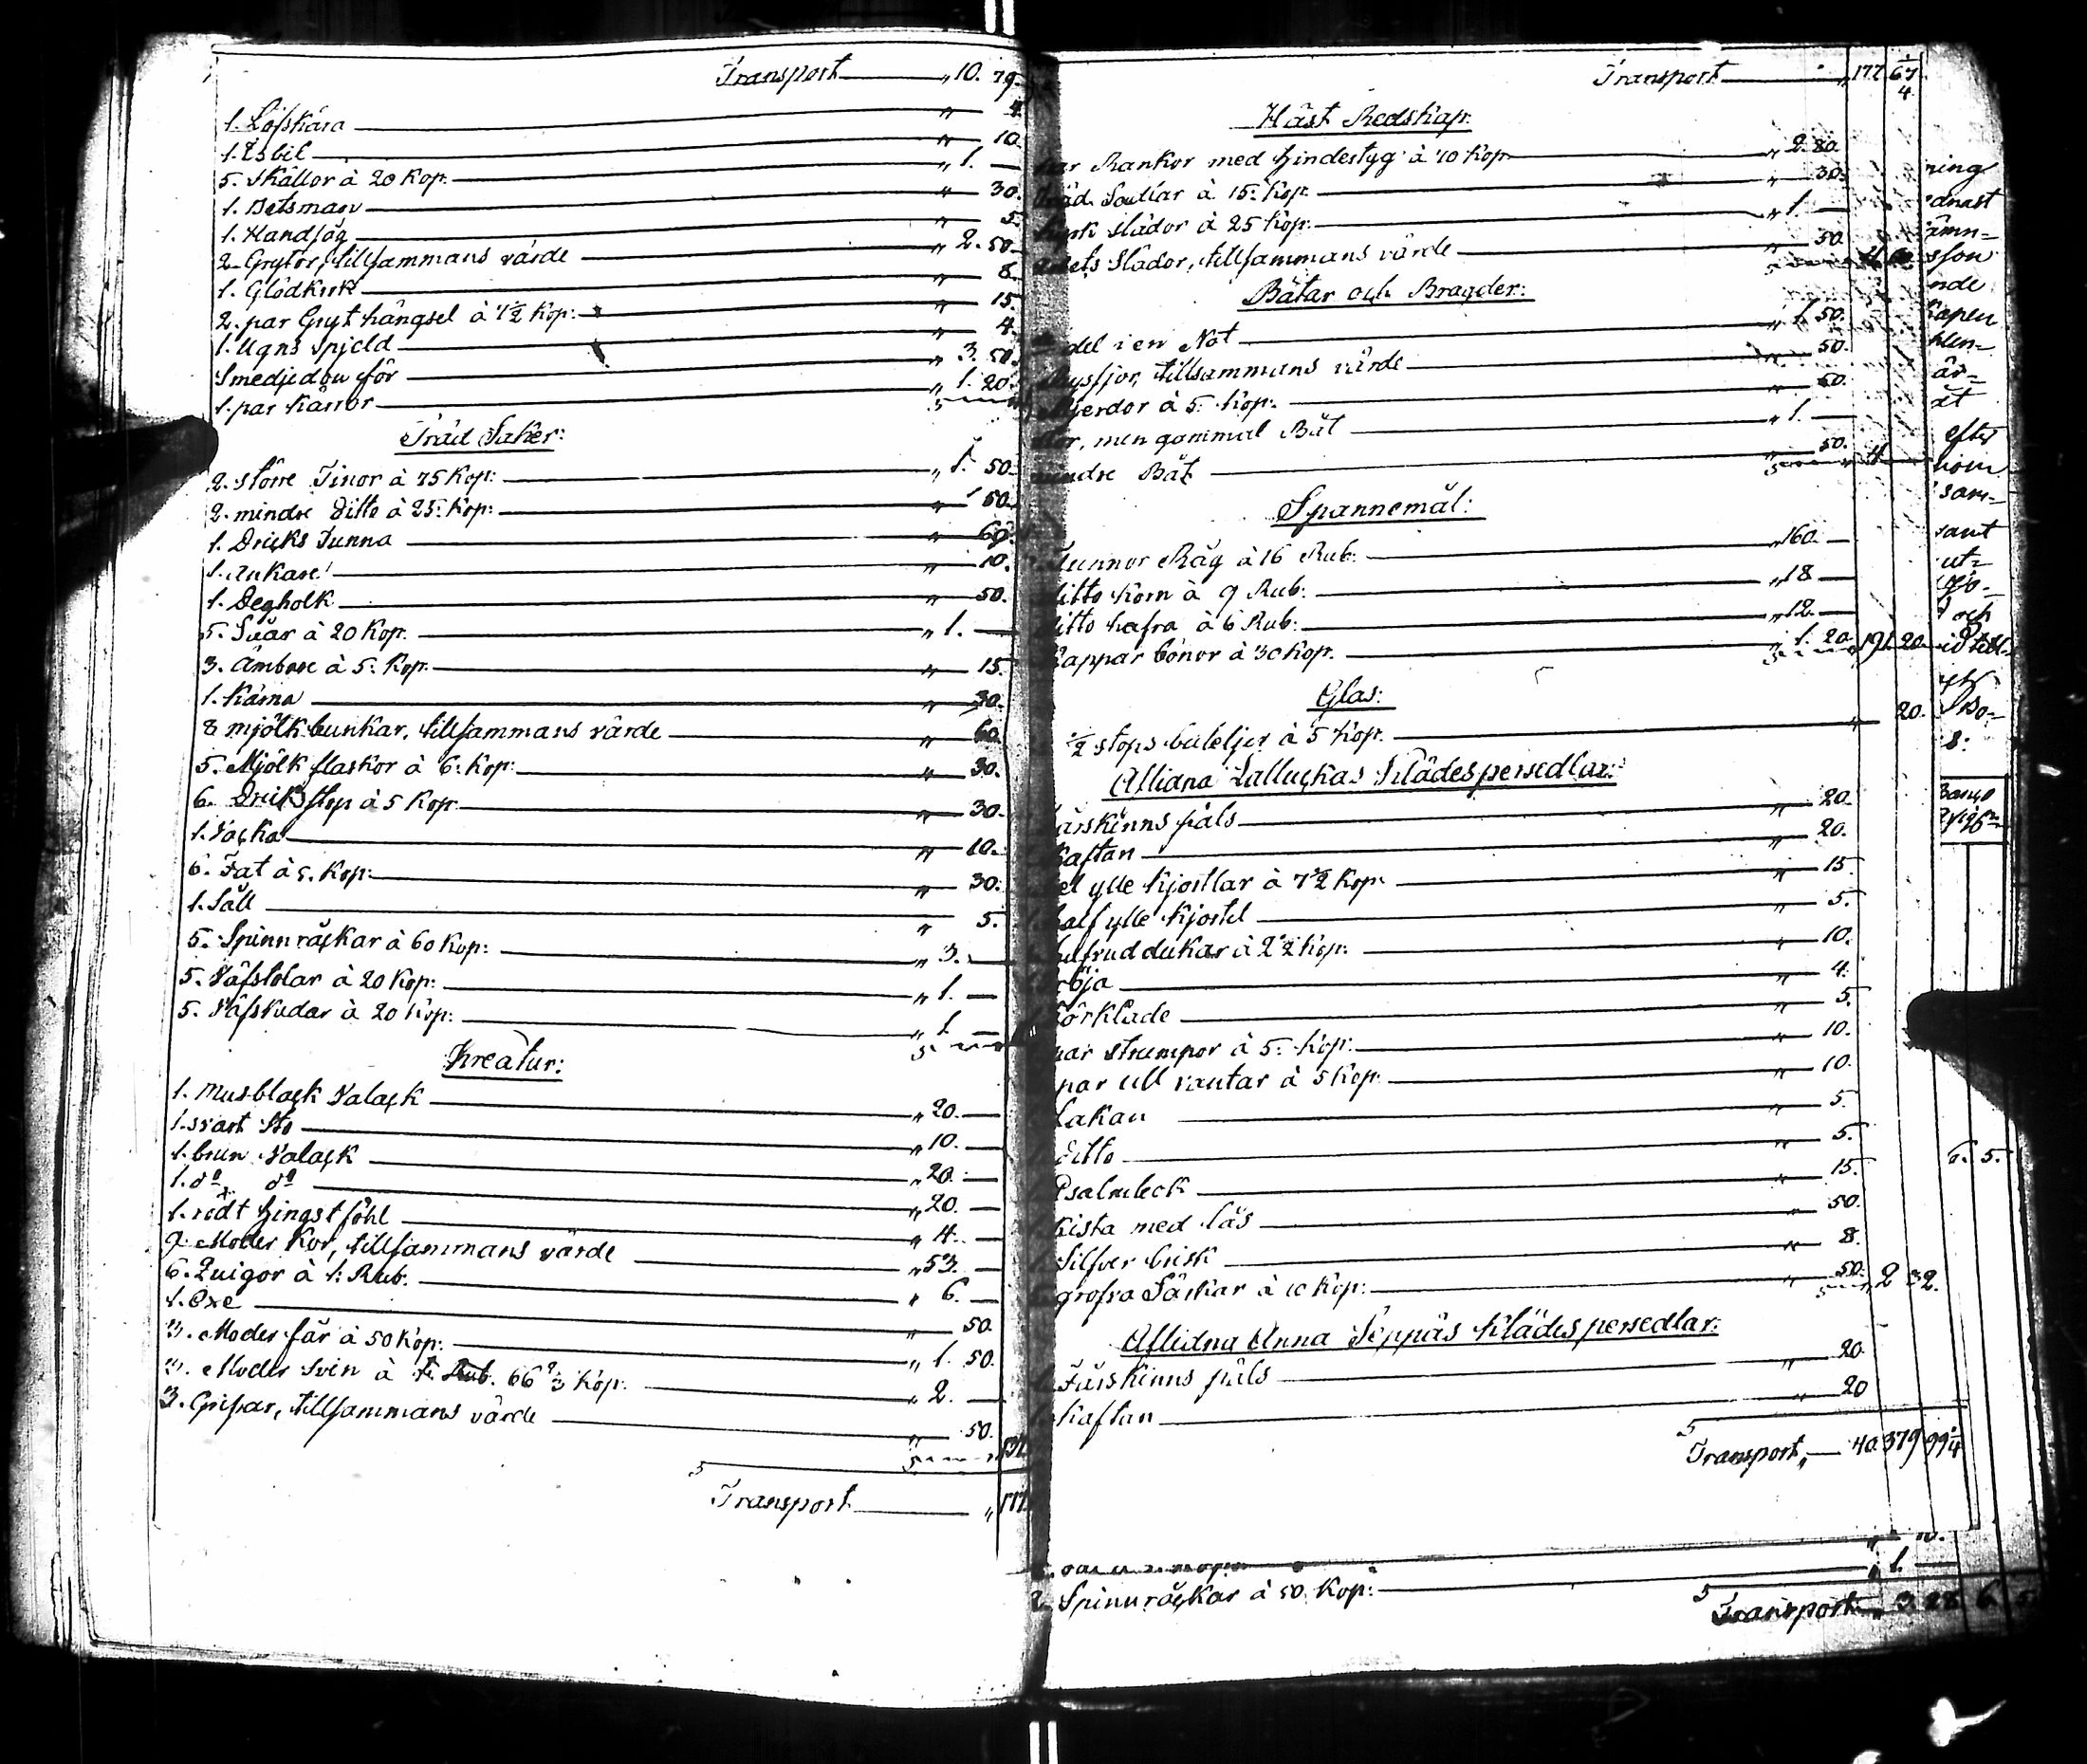 Transport — „ 10. 79.
1. Löfskära — „ 4
1. Isbil — „ 10.
5. Skällor à 20 Kop. — „ 1. —
1. Betsman — „ 30.
1. Handsåg — „ 5.
2. Grytor, tillsammans värde — „ 2. 50.
1. Glödkrok — „ 8.
2. par Gryt hängsel à 7½ Kop: — „ 15.
1. Ugns Spjeld — „ 4.
Smedjedon för — „ 3. 50.
1. par Kärror — „ 1. 20.
Träd Saker:
2. större Tinor à 75 Kop: — „ 1. 50.
2. mindre ditto à 25. Kop: — „ 50.
1. Dricks Tunna — „ 60.
1. Ankare — „ 10.
1. Degholk — „ 50.
5. Såar à 20 Kop. — „ 1. —
3. Ämbare à 5. Kop. — „ 15.
1. Kärna — „ 30.
8 mjölk bunkar, tillsammans värde — „ 60.
5. Mjölk flaskor à 6. Kop: — „ 30.
6. Dricks stop à 5 Kop. — „ 30.
1. — „ 10.
6. Fat à 5. Kop: — „ 30.
1. Såll — „ 5.
5. Spinnråckar à 60 Kop: — „ 3. —
5. Väfstolar à 20 Kop: — „ 1. —
5. Väfskedar à 20 Kop: — „ 1. —
Kreatur:
1. Musblack Valack — „ 20. —
1. svart Sto — „ 10. —
1. brun Valack — „ 20. —
1. do do — „ 20. —
1. rödt hingst föhl — „ 4. —
9. Moder Kor, tillsammans värde — „ 53. —
6. Quigor à 1: Rub. — „ 6. —
1. Oxe — „ 50.
3. Moder får à 50 Kop: — „ 1. 50.
3. Moder Svin à 66⅔ Kop: — „ 2. —
3. Grisar, tillsammans värde — „ 50.
Transport — „ 177.
Transport — „ 177 67
4
Häst Redskap:
par Rankor med hindestyg à 70 Kop — „ 2. 80.
à 15. Kop. — „ 30.
slädor à 25 Kop: — „ 1. —
Slädor, tillsammans värde — „ 50.
Båtar och Bragder:
del i en Not — „ 1. 50.
Ryssjor, tillsammans värde — „ 50.
Mjerdor à 5. Kop. — „ 50.
stor, men gammal Båt — „ 1. —
mindre Båt — „ 50. 4 —
Spannemål:
Tunnor Råg à 16 Rub: — „ 160. —
ditto Korn à 9 Rub: — „ 18 —
ditto hafra à 6 Rub: — „ 12. —
Kappar bönor à 30 Kop. — „ 1. 20. 191. 20.
Glas:
½ stops buteljer à 5 Kop. — „ 20.
Aflidna Lalluckas Klädespersedlar:
Fårskinns päls — „ 20.
Kaftan — „ 20.
hel ylle kjortlar à 7½ Kop. — „ 15.
half ylle Kjortel — „ 5.
hufvud dukar à 2½ Kop: — „ 10.
tröja — „ 4.
Förkläde — „ 5.
par strumpor à 5. Kop: — „ 10.
par ull vantar à 5 Kop. — „ 10.
Lakan — „ 5.
ditto — „ 5.
Psalmbok — „ 15.
Kista med lås — „ 50.
Silfver brisk — „ 8.
grofva Särkar à 10 Kop: — „ 50. „ 2 32.
Aflidna Anna Seppäs Klädespersedlar:
1. Fårskinns päls — „ 20.
1. Kaftan — „ 20
Transport, — 40. 379 99¼
2. Spinnråckar à 50. Kop: — „ 1. —
Transport — „ 3. 28 6. 5
ning
ämn=
nde
åt
efter
sam=
ut=
och
6. 5.